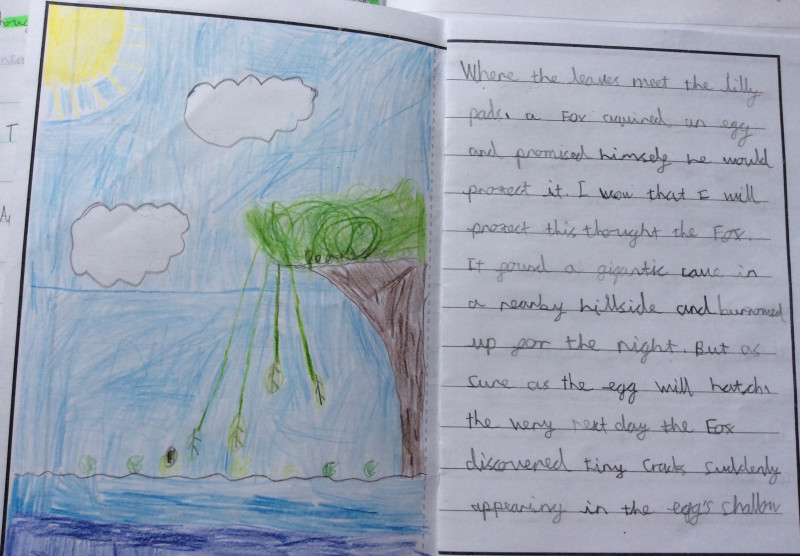 Where the leaves meet the lilly
pads, a Fox aquired an egg
and promised himself he would
protect it I vow that I will
protect this thought the Fox.
It found a gigantic cave in
a nearby hillside and burrowed
up for the night. But as
sure as the egg will hatch,
the very next day the Fox
discovered tiny cracks suddenly
appearing in the egg's shallow